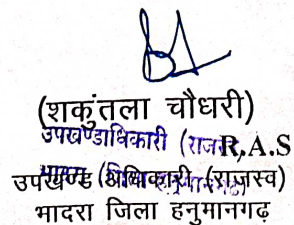 (शकुंतला चौधरी)
उपखण्डाधिकारी (राजस्व) R.A.S
उपखण्ड अधिकारी (राजस्व)
भादरा जिला हनुमानगढ़